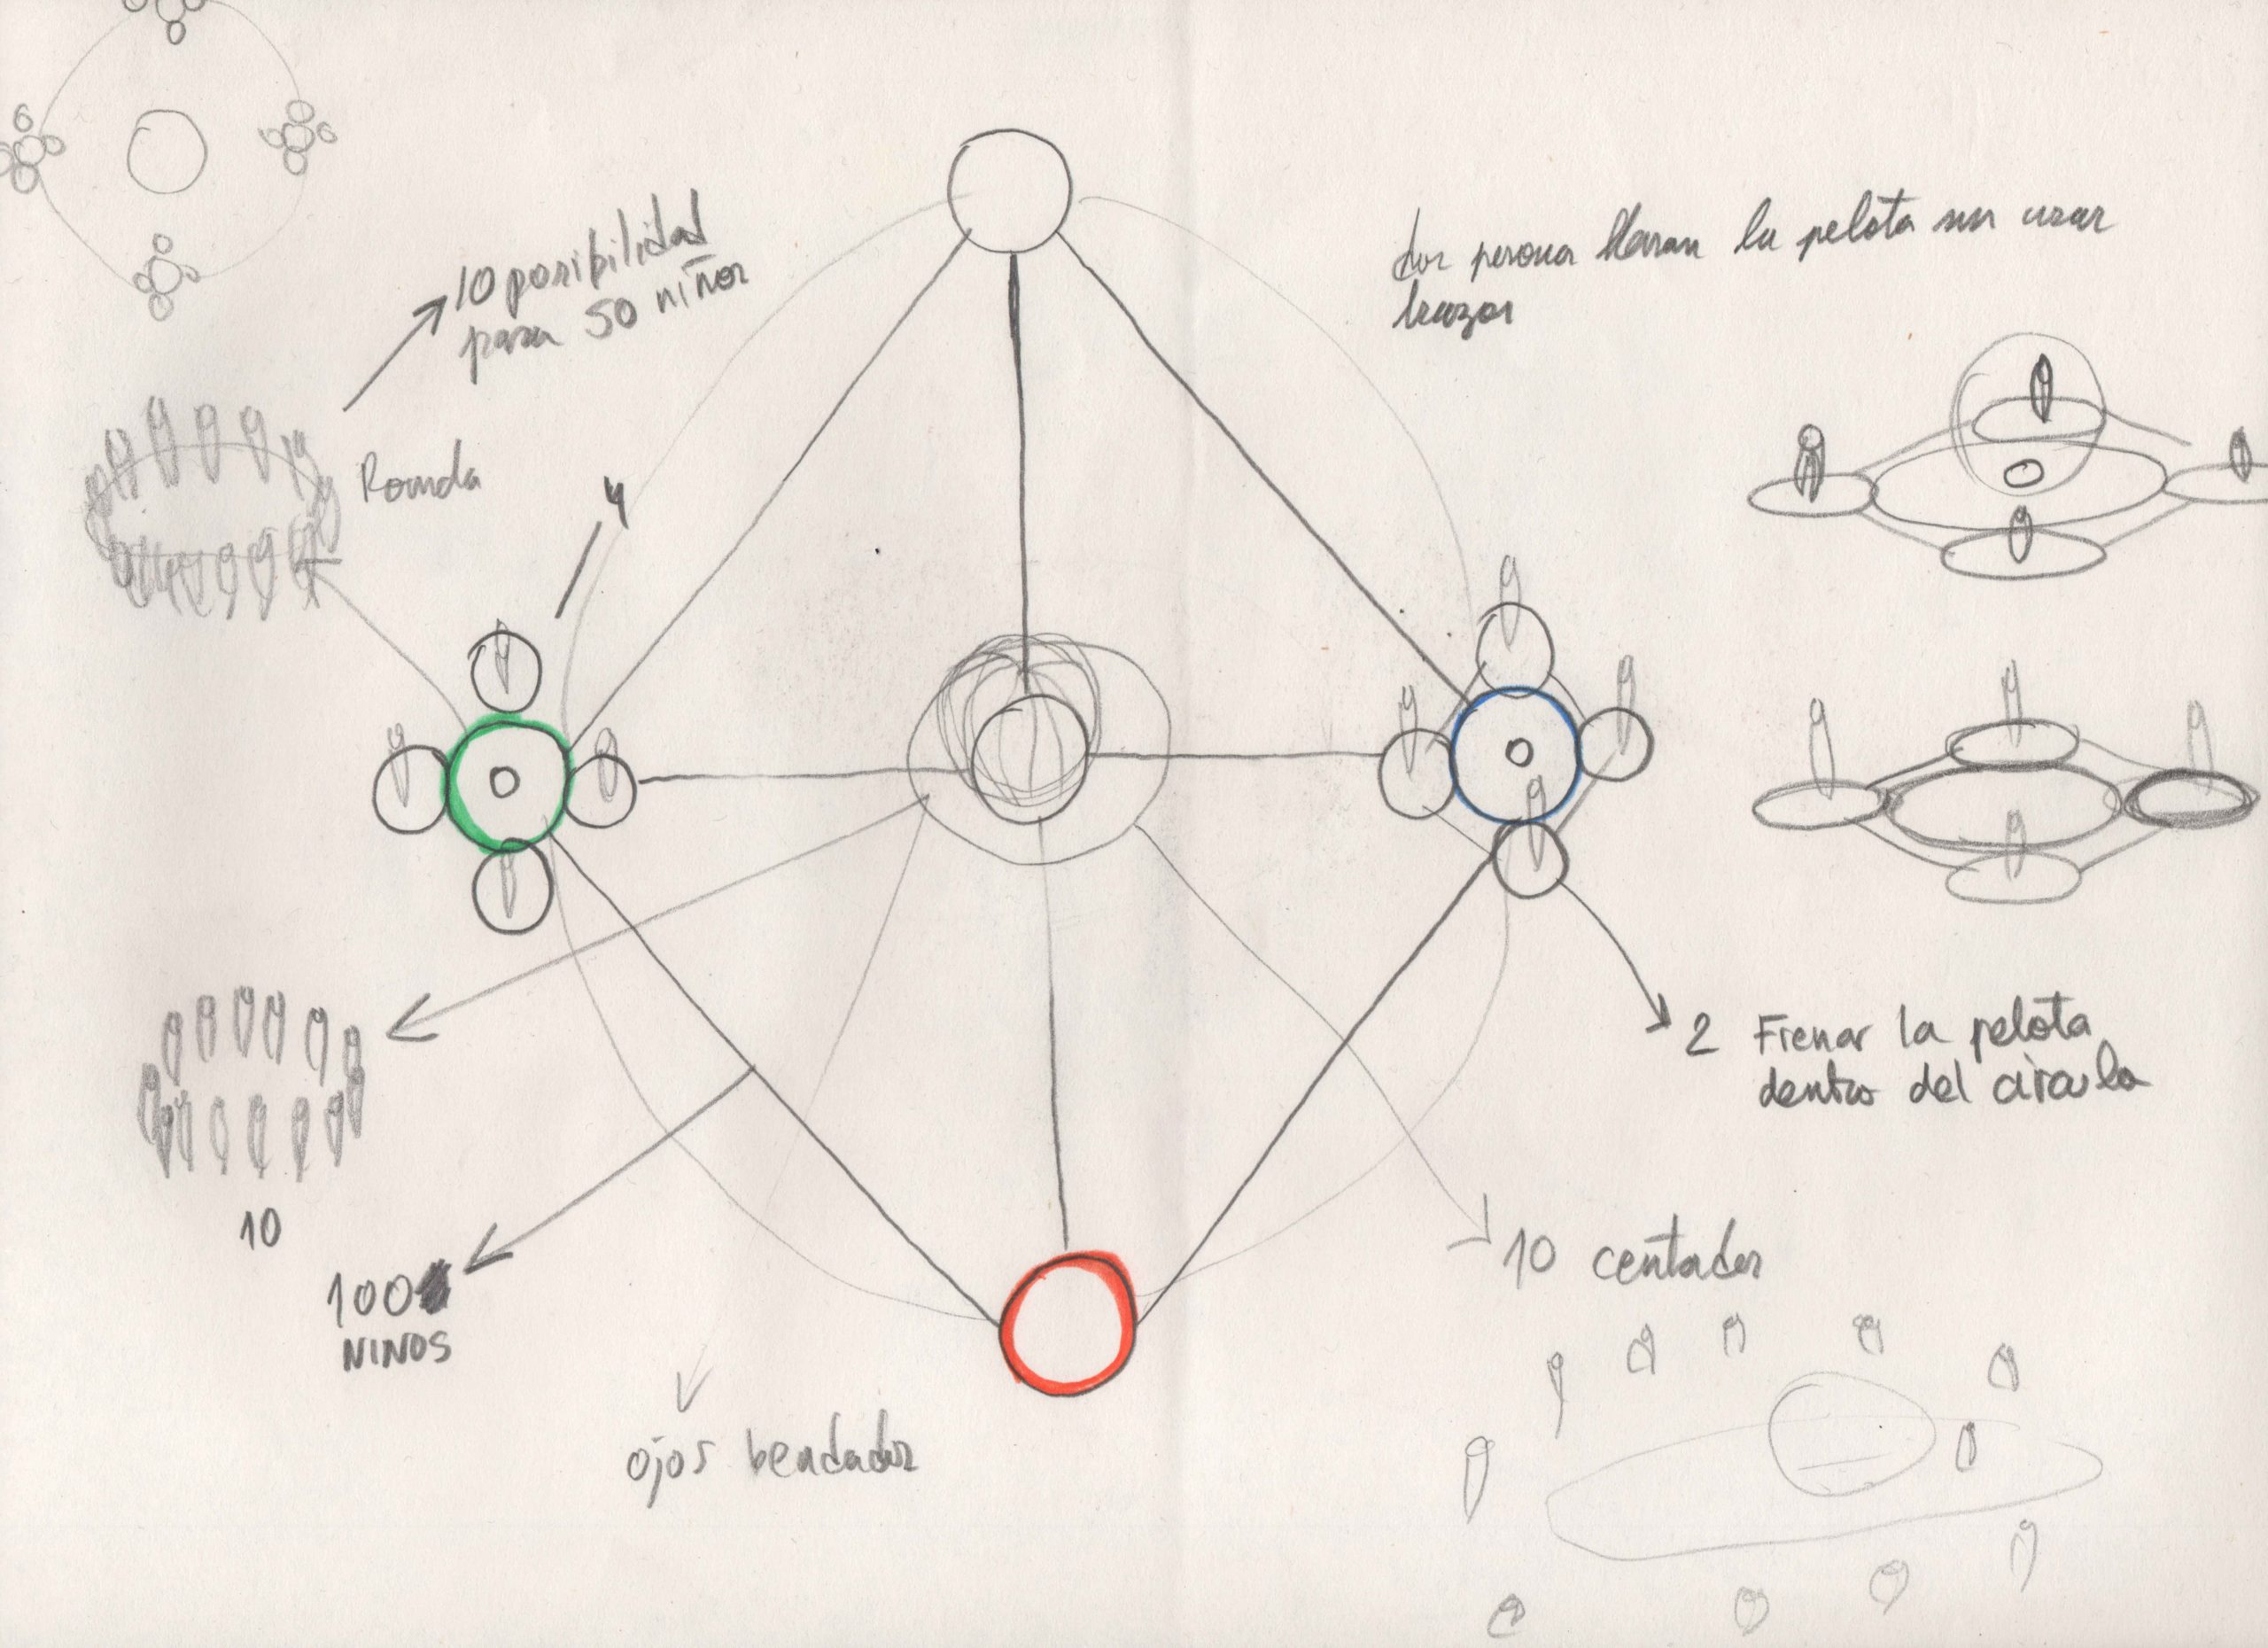 10 posibilidad
para 50 niños
dos persona llevan la pelota sin usar
brazos
Rounda
4
2 Frenar la pelota
dentro del circulo
10
100
NINOS
10 centados
ojos bendados